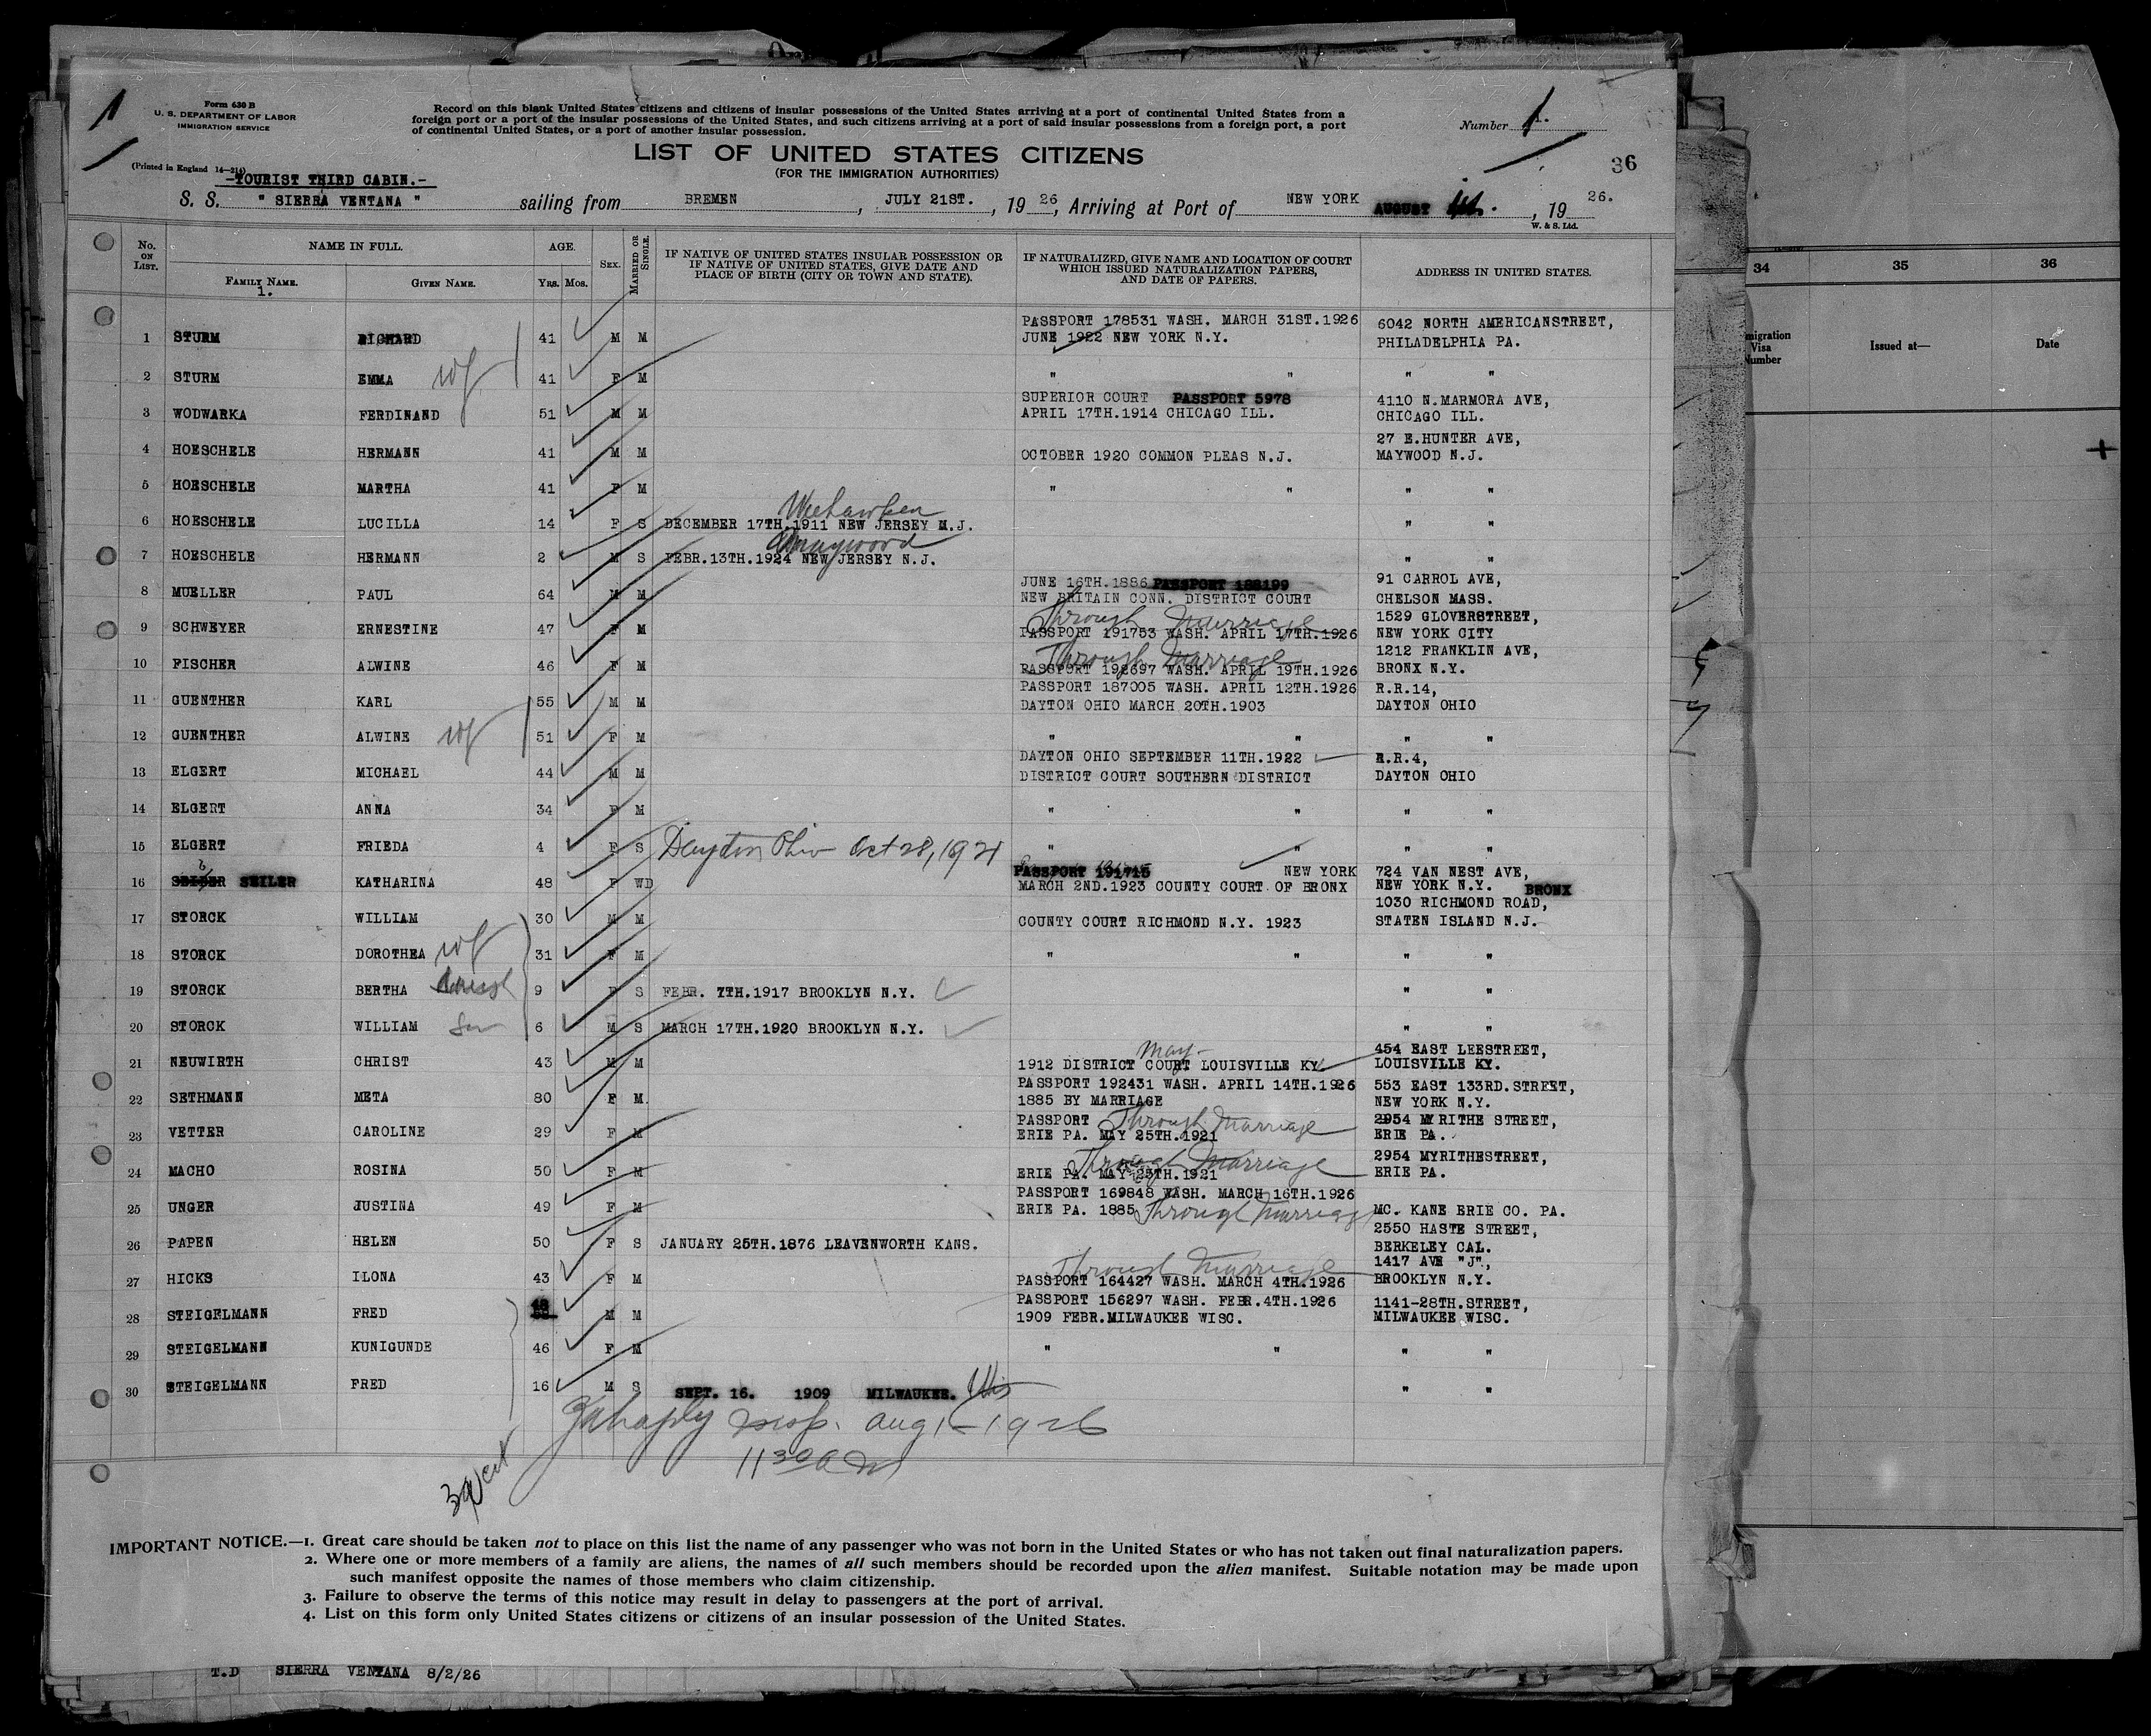 1
Form 630 B
U. S. DEPARTMENT OF LABOR
IMMIGRATION SERVICE
Record on this blank United States citizens and citizens of insular possessions of the United States arriving at a port of continental United States from a
foreign port or a port of the insular possessions of the United States, and such citizens arriving at a port of said insular possessions from a foreign port, a port
of continental United States, or a port of another insular possession.
Number 1.
LIST OF UNITED STATES CITIZENS
(FOR THE IMMIGRATION AUTHORITIES)
36
(Printed in England 14-214)
-TOURIST THIRD CABIN.-
S. S. " SIERRA VENTANA " sailing from BREMEN, JULY 21ST., 19 26, Arriving at Port of NEW YORK AUGUST 1st., 19 26.
W. & S. Ltd.
No. ON LIST. NAME IN FULL. AGE. SEX. MARRIED OR SINGLE. IF NATIVE OF UNITED STATES INSULAR POSSESSION OR IF NATIVE OF UNITED STATES, GIVE DATE AND PLACE OF BIRTH (CITY OR TOWN AND STATE). IF NATURALIZED, GIVE NAME AND LOCATION OF COURT WHICH ISSUED NATURALIZATION PAPERS, AND DATE OF PAPERS. ADDRESS IN UNITED STATES.
FAMILY NAME. GIVEN NAME. YRS. MOS.
1.
34 35 36
migration Visa Number Issued at— Date
PASSPORT 178531 WASH. MARCH 31ST.1926 6042 NORTH AMERICANSTREET,
1 STURM RICHARD 41 M M JUNE 1922 NEW YORK N.Y. PHILADELPHIA PA.
2 STURM EMMA wf 41 F M " " " "
SUPERIOR COURT PASSPORT 5978 4110 N.MARMORA AVE,
3 WODWARKA FERDINAND 51 M M APRIL 17TH.1914 CHICAGO ILL. CHICAGO ILL.
27 E.HUNTER AVE,
4 HOESCHELE HERMANN 41 M M OCTOBER 1920 COMMON PLEAS N.J. MAYWOOD N.J.
5 HOESCHELE MARTHA 41 F M " " " "
Weehawken
6 HOESCHELE LUCILLA 14 F S DECEMBER 17TH.1911 NEW JERSEY N.J. " "
Maywood
7 HOESCHELE HERMANN 2 M S FEBR.13TH.1924 NEW JERSEY N.J. " "
JUNE 16TH.1886 PASSPORT 188199 91 CARROL AVE,
8 MUELLER PAUL 64 M M NEW BRITAIN CONN. DISTRICT COURT CHELSON MASS.
Through Marriage 1529 GLOVERSTREET,
9 SCHWEYER ERNESTINE 47 F M PASSPORT 191753 WASH. APRIL 17TH.1926 NEW YORK CITY
Through Marriage 1212 FRANKLIN AVE,
10 FISCHER ALWINE 46 F M PASSPORT 192697 WASH. APRIL 19TH.1926 BRONX N.Y.
PASSPORT 187005 WASH. APRIL 12TH.1926 R.R.14,
11 GUENTHER KARL 55 M M DAYTON OHIO MARCH 20TH.1903 DAYTON OHIO
12 GUENTHER ALWINE wf 51 F M " " " "
DAYTON OHIO SEPTEMBER 11TH.1922 R.R.4,
13 ELGERT MICHAEL 44 M M DISTRICT COURT SOUTHERN DISTRICT DAYTON OHIO
14 ELGERT ANNA 34 F M " " " "
15 ELGERT FRIEDA 4 F S Dayton Ohio Oct 28, 1921 " " " "
PASSPORT 191715 NEW YORK 724 VAN NEST AVE,
16 SEILER KATHARINA 48 F WD MARCH 2ND.1923 COUNTY COURT OF BRONX NEW YORK N.Y. BRONX
1030 RICHMOND ROAD,
17 STORCK WILLIAM 30 M M COUNTY COURT RICHMOND N.Y. 1923 STATEN ISLAND N.J.
18 STORCK DOROTHEA wf 31 F M " " " "
19 STORCK BERTHA 9 F S FEBR. 7TH.1917 BROOKLYN N.Y. " "
20 STORCK WILLIAM Son 6 M S MARCH 17TH.1920 BROOKLYN N.Y. " "
May 454 EAST LEESTREET,
21 NEUWIRTH CHRIST 43 M M 1912 DISTRICT COURT LOUISVILLE KY LOUISVILLE KY.
PASSPORT 192431 WASH. APRIL 14TH.1926 553 EAST 133RD.STREET,
22 SETHMANN META 80 F M. 1885 BY MARRIAGE NEW YORK N.Y.
PASSPORT Through Marriage 2954 MYRITHE STREET,
23 VETTER CAROLINE 29 F M ERIE PA. MAY 25TH.1921 ERIE PA.
Through Marriage 2954 MYRITHESTREET,
24 MACHO ROSINA 50 F M ERIE PA. MAY 25TH.1921 ERIE PA.
PASSPORT 169848 WASH. MARCH 16TH.1926
25 UNGER JUSTINA 49 F M ERIE PA. 1885 Through Marriage MC. KANE ERIE CO. PA.
2550 HASTE STREET,
26 PAPEN HELEN 50 F S JANUARY 25TH.1876 LEAVENWORTH KANS. BERKELEY CAL.
Through Marriage 1417 AVE "J",
27 HICKS ILONA 43 F M PASSPORT 164427 WASH. MARCH 4TH.1926 BROOKLYN N.Y.
PASSPORT 156297 WASH. FEBR.4TH.1926 1141-28TH.STREET,
28 STEIGELMANN FRED M M 1909 FEBR.MILWAUKEE WISC. MILWAUKEE WISC.
29 STEIGELMANN KUNIGUNDE 46 F M " " " "
30 STEIGELMANN FRED 16 M S SEPT. 16. 1909 MILWAUKEE. Wis " "
Insp. Aug 1-1926
11 30 am
IMPORTANT NOTICE.—1. Great care should be taken not to place on this list the name of any passenger who was not born in the United States or who has not taken out final naturalization papers.
2. Where one or more members of a family are aliens, the names of all such members should be recorded upon the alien manifest. Suitable notation may be made upon
such manifest opposite the names of those members who claim citizenship.
3. Failure to observe the terms of this notice may result in delay to passengers at the port of arrival.
4. List on this form only United States citizens or citizens of an insular possession of the United States.
T.D SIERRA VENTANA 8/2/26